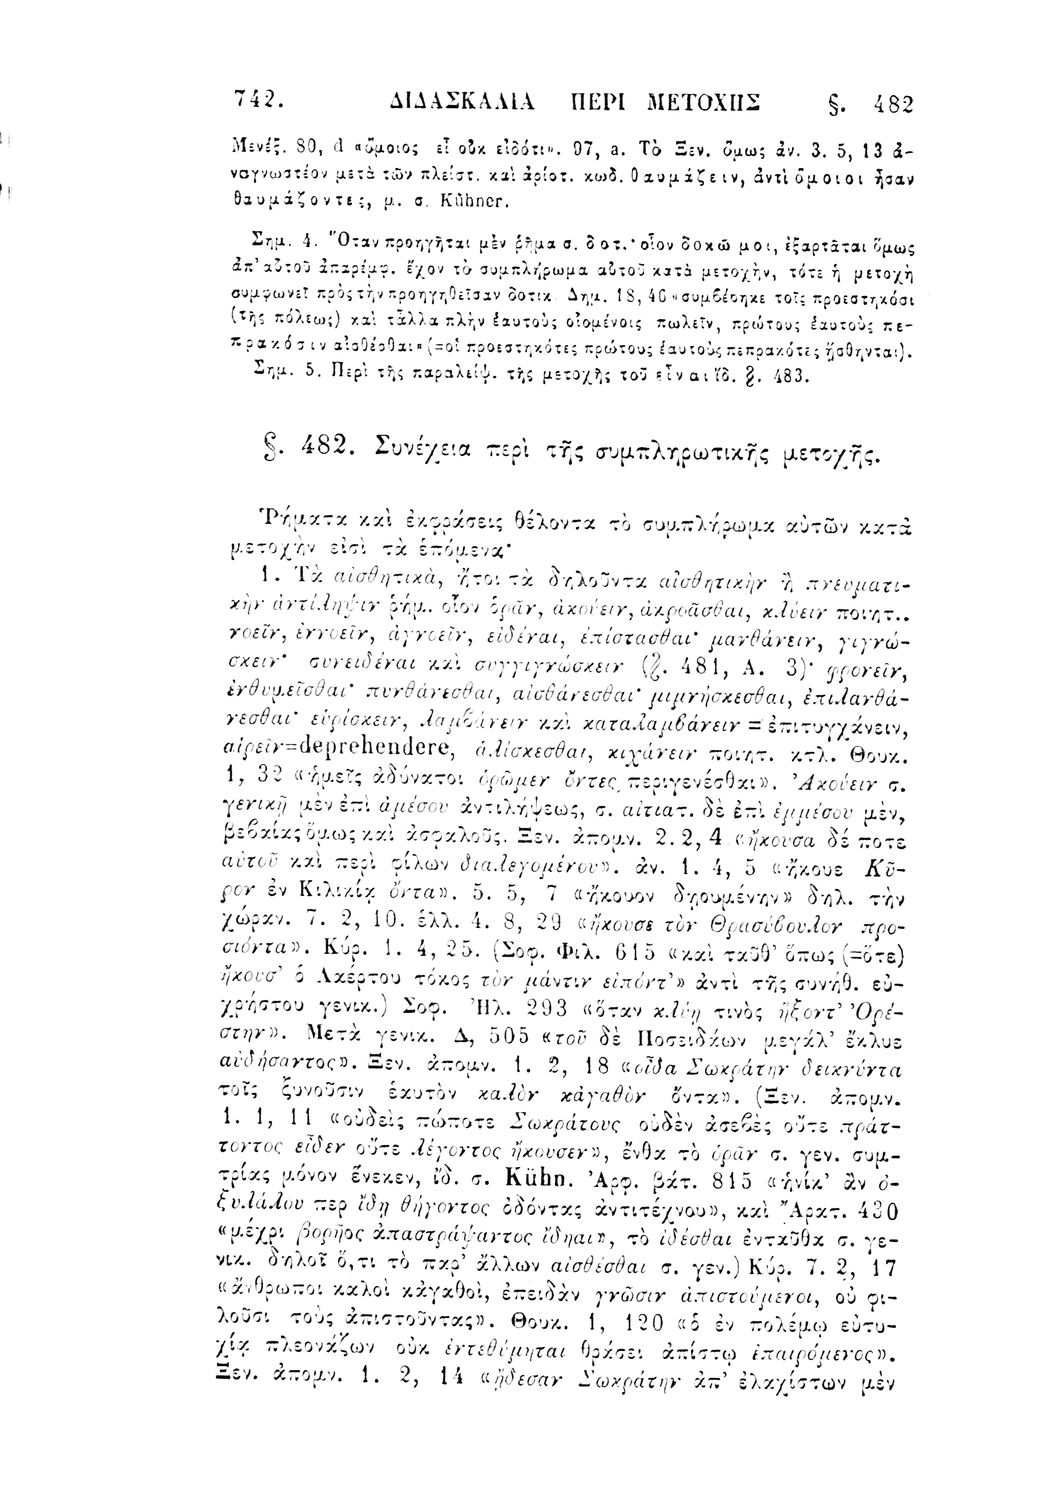 742. ΔΙΔΑΣΚΑΛΙΑ ΠΕΡΙ ΜΕΤΟΧΗΣ §. 482
Μενέξ. 80, d «ὅμοιος εἶ οὐκ εἰδότι». 97, a. Τὸ Ξεν. ὅμως ἀν. 3. 5, 13 ἀ-
ναγνωστέον μετὰ τῶν πλείστ. καὶ ἀρίστ. κωδ. θαυμάζειν, ἀντὶ ὅμοιοι ἦσαν
θαυμάζοντες, μ. σ. Kühner.
Σημ. 4. Ὅταν προηγῆται μὲν ῥῆμα σ. δοτ.· οἷον δοκῶ μοι, ἐξαρτᾶται ὅμως
ἀπ' αὐτοῦ ἀπαρέμφ. ἔχον τὸ συμπλήρωμα αὐτοῦ κατὰ μετοχὴν, τότε ἡ μετοχὴ
συμφωνεῖ πρὸς τὴν προηγηθεῖσαν δοτικ. Δημ. 18, 46 «συμβέβηκε τοῖς προεστηκόσι
(τῆς πόλεως) καὶ τἄλλα πλὴν ἑαυτοὺς οἰομένοις πωλεῖν, πρώτους ἑαυτοὺς πε-
πρακόσιν αἰσθέσθαι» (=οἱ προεστηκότες πρώτους ἑαυτοὺς πεπρακότες ᾔσθηνται).
Σημ. 5. Περὶ τῆς παραλείψ. τῆς μετοχῆς τοῦ εἶναι ἴδ. §. 483.
§. 482. Συνέχεια περὶ τῆς συμπληρωτικῆς μετοχῆς.
Ῥήματα καὶ ἐκφράσεις θέλοντα τὸ συμπλήρωμα αὐτῶν κατὰ
μετοχὴν εἰσὶ τὰ ἑπόμενα·
1. Τὰ αἰσθητικὰ, ἤτοι τὰ δηλοῦντα αἰσθητικὴν ἢ πνευματι-
κὴν ἀντίληψιν ῥήμ. οἷον ὁρᾶν, ἀκούειν, ἀκροᾶσθαι, κλύειν ποιητ..
νοεῖν, ἐννοεῖν, ἀγνοεῖν, εἰδέναι, ἐπίστασθαι· μανθάνειν, γιγνώ-
σκειν· συνειδέναι καὶ συγγιγνώσκειν (§. 481, Α. 3)· φρονεῖν,
ἐνθυμεῖσθαι· πυνθάνεσθαι, αἰσθάνεσθαι· μιμνήσκεσθαι, ἐπιλανθά-
νεσθαι· εὑρίσκειν, λαμβάνειν καὶ καταλαμβάνειν = ἐπιτυγχάνειν,
αἱρεῖν=deprehendere, ἁλίσκεσθαι, κιχάνειν ποιητ. κτλ. Θουκ.
1, 32 «ἡμεῖς ἀδύνατοι ὁρῶμεν ὄντες περιγενέσθαι». Ἀκούειν σ.
γενικῇ μὲν ἐπὶ ἀμέσου ἀντιλήψεως, σ. αἰτιατ. δὲ ἐπὶ ἐμμέσου μὲν,
βεβαίας ὅμως καὶ ἀσφαλοῦς. Ξεν. ἀπομν. 2. 2, 4 «ἤκουσα δέ ποτε
αὐτοῦ καὶ περὶ φίλων διαλεγομένου». ἀν. 1. 4, 5 «ἤκουε Κῦ-
ρον ἐν Κιλικίᾳ ὄντα». 5. 5, 7 «ἤκουον δῃουμένην» δηλ. τὴν
χώραν. 7. 2, 10. ἑλλ. 4. 8, 29 «ἤκουσε τὸν Θρασύβουλον προ-
σιόντα». Κύρ. 1. 4, 25. (Σοφ. Φιλ. 615 «καὶ ταῦθ' ὅπως (=ὅτε)
ἤκουσ' ὁ Λαέρτου τόκος τὸν μάντιν εἰπόντ'» ἀντὶ τῆς συνήθ. εὐ-
χρήστου γενικ.) Σοφ. Ἠλ. 293 «ὅταν κλύῃ τινὸς ἥξοντ' Ὀρέ-
στην». Μετὰ γενικ. Δ, 505 «τοῦ δὲ Ποσειδάων μεγάλ' ἔκλυε
αὐδήσαντος». Ξεν. ἀπομν. 1. 2, 18 «οἶδα Σωκράτην δεικνύντα
τοῖς ξυνοῦσιν ἑαυτὸν καλὸν κἀγαθὸν ὄντα». (Ξεν. ἀπομν.
1. 1, 11 «οὐδεὶς πώποτε Σωκράτους οὐδὲν ἀσεβὲς οὔτε πράτ-
τοντος εἶδεν οὔτε λέγοντος ἤκουσεν», ἔνθα τὸ ὁρᾶν σ. γεν. συμ-
τρίας μόνον ἕνεκεν, ἴδ. σ. Kühn. Ἀρφ. βάτ. 815 «ἡνίκ' ἂν ὀ-
ξυλάλου περ ἴδῃ θήγοντος ὀδόντας ἀντιτέχνου», καὶ Ἄρατ. 430
«μέχρι βορῆος ἀπαστράψαντος ἴδηαι», τὸ ἰδέσθαι ἐνταῦθα σ. γε-
νικ. δηλοῖ ὅ,τι τὸ παρ' ἄλλων αἰσθέσθαι σ. γεν.) Κύρ. 7. 2, 17
«ἄνθρωποι καλοὶ κἀγαθοὶ, ἐπειδὰν γνῶσιν ἀπιστούμενοι, οὐ φι-
λοῦσι τοὺς ἀπιστοῦντας». Θουκ. 1, 120 «ὁ ἐν πολέμῳ εὐτυ-
χίᾳ πλεονάζων οὐκ ἐντεθύμηται θράσει ἀπίστῳ ἐπαιρόμενος».
Ξεν. ἀπομν. 1. 2, 14 «ᾔδεσαν Σωκράτην ἀπ' ἐλαχίστων μὲν